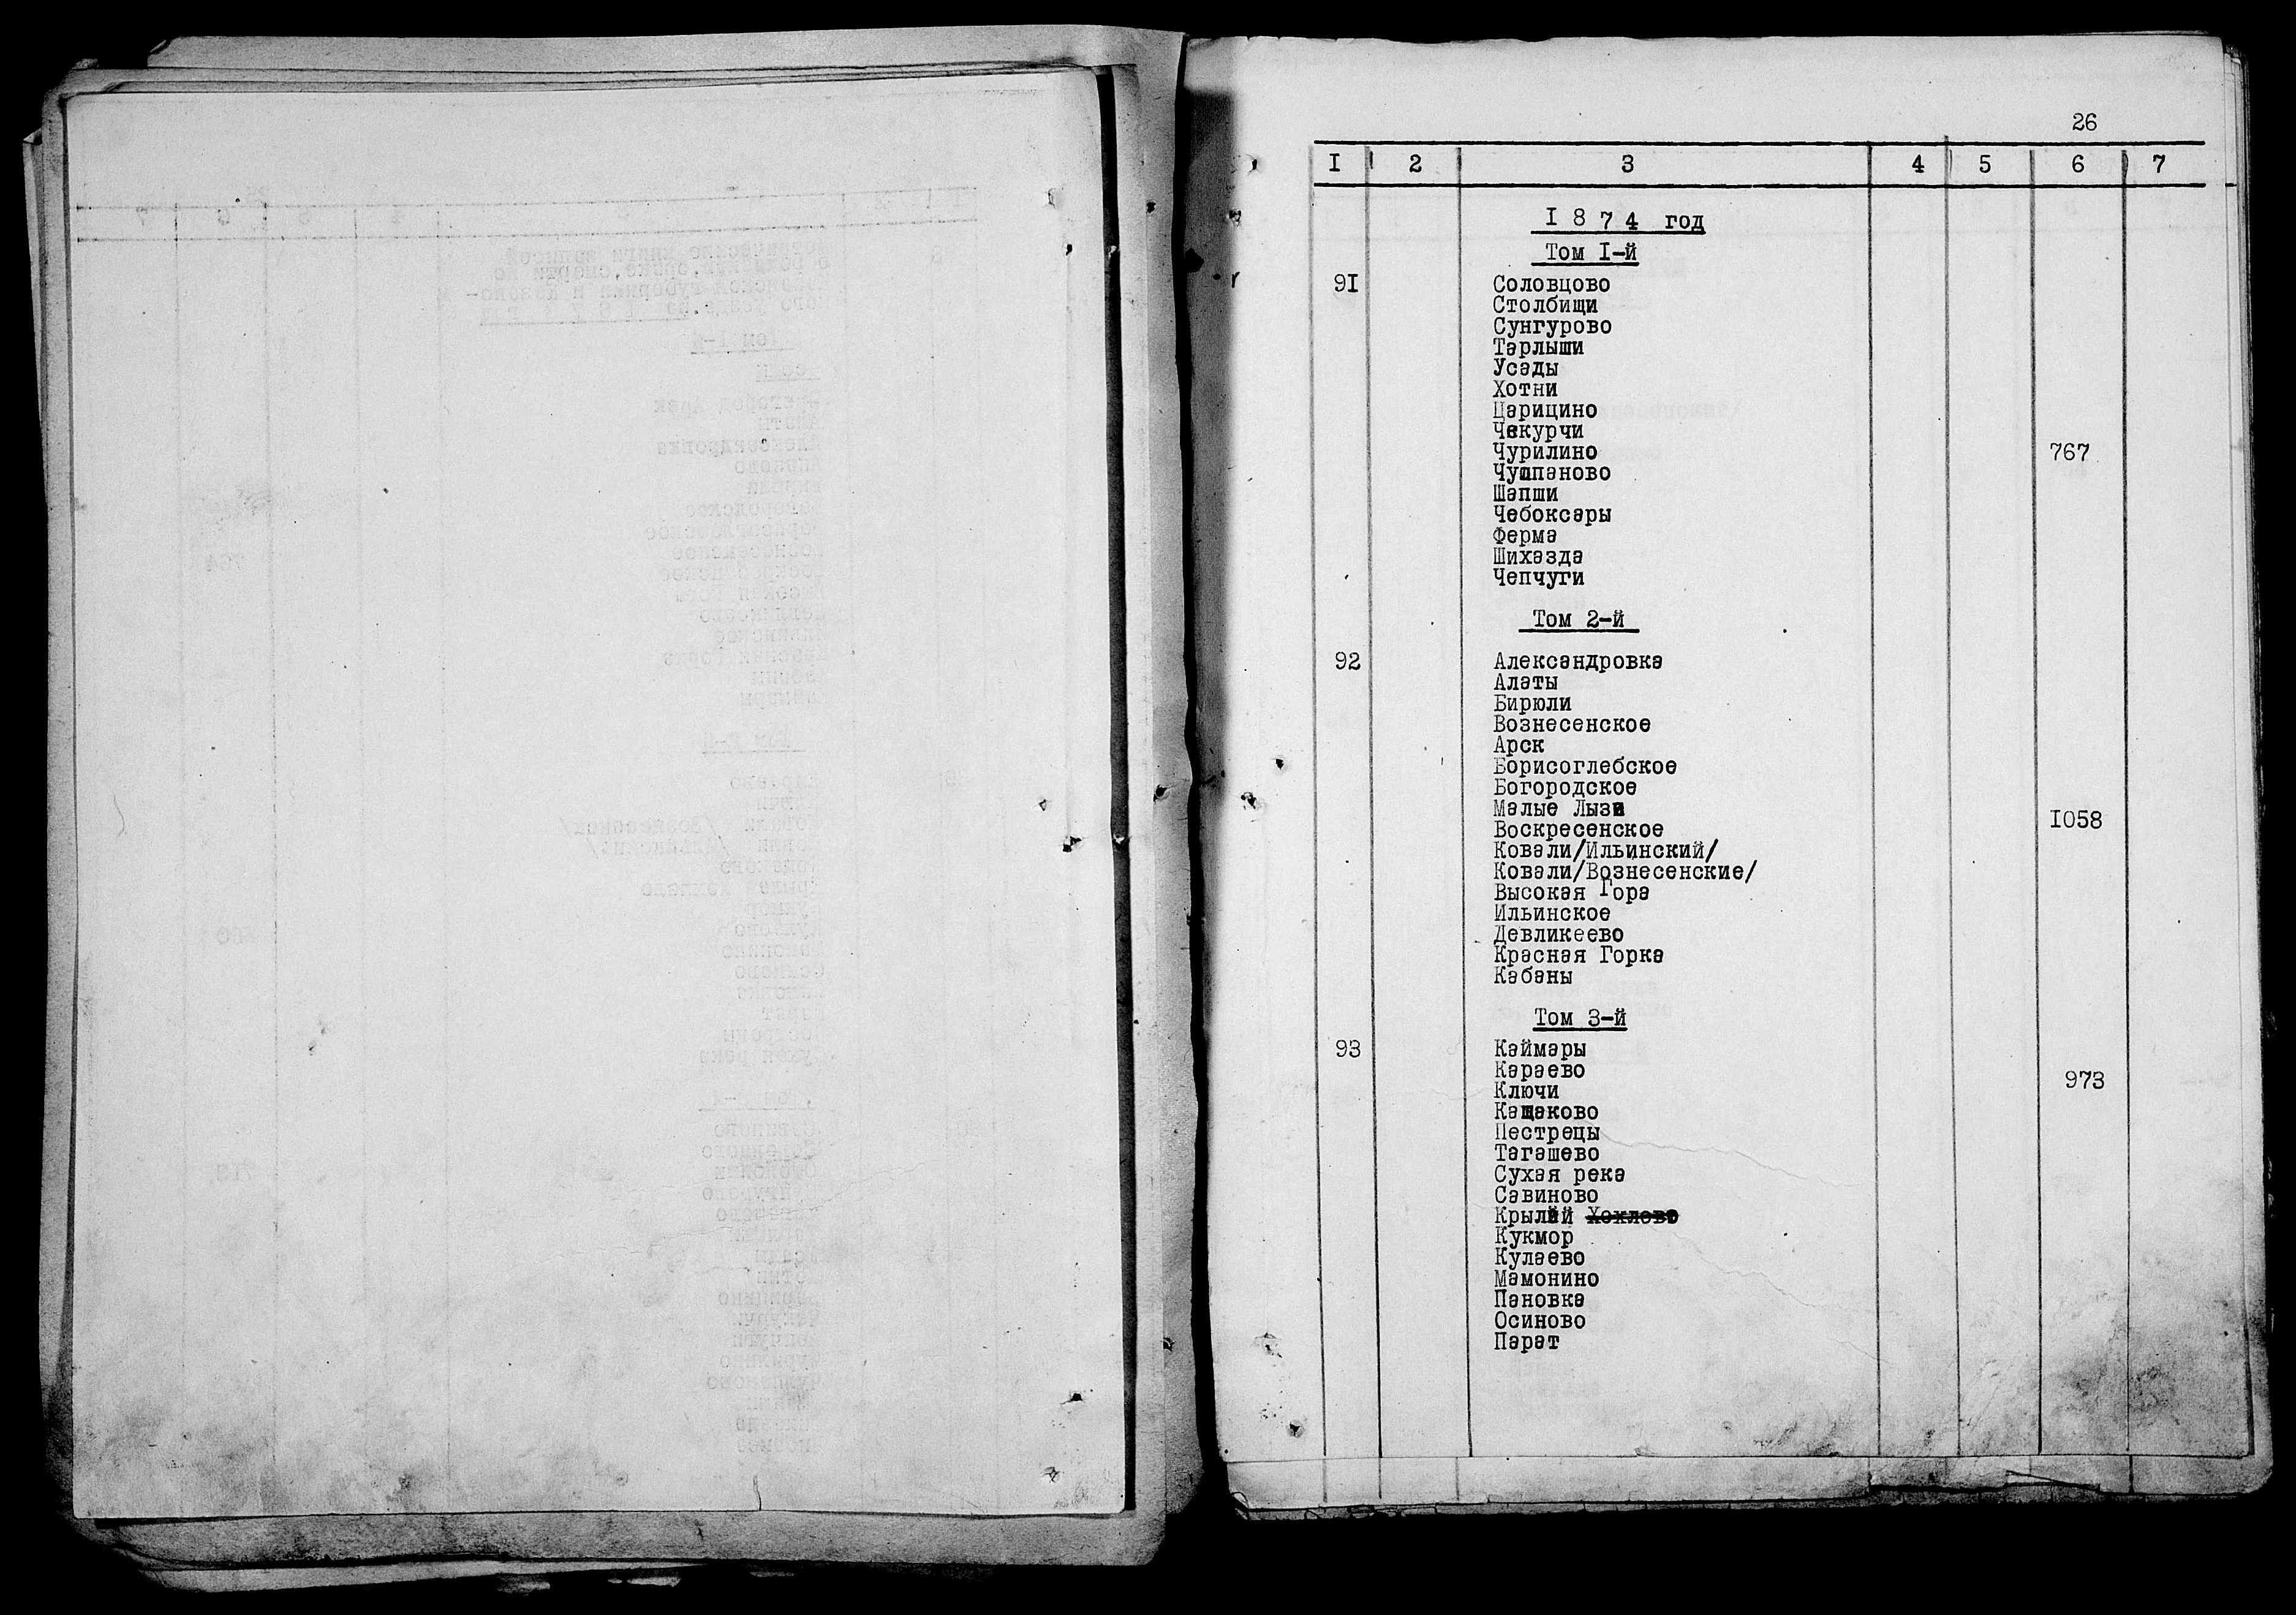 26
I 2 3 4 5 6 7
I 8 7 4 год
Том I-й
9I Соловцово
Столбищи
Сунгурово
Тарлыши
Усады
Хотни
Царицино
Чекурчи
Чурилино 767
Чушпаново
Шапши
Чебоксары
Ферма
Шихазда
Чепчуги
Том 2-й
92 Александровка
Алаты
Бирюли
Вознесенское
Арск
Борисоглебское
Богородское
Малые Лызи
Воскресенское I058
Ковали/Ильинский/
Ковали/Вознесенские/
Высокая Гора
Ильинское
Девликеево
Красная Горка
Кабаны
Том 3-й
93 Каймары
Караево
Ключи 973
Кащаково
Пестрецы
Тагашево
Сухая река
Савиново
Крылай Хохлово
Кукмор
Кулаево
Мамонино
Пановка
Осиново
Парат